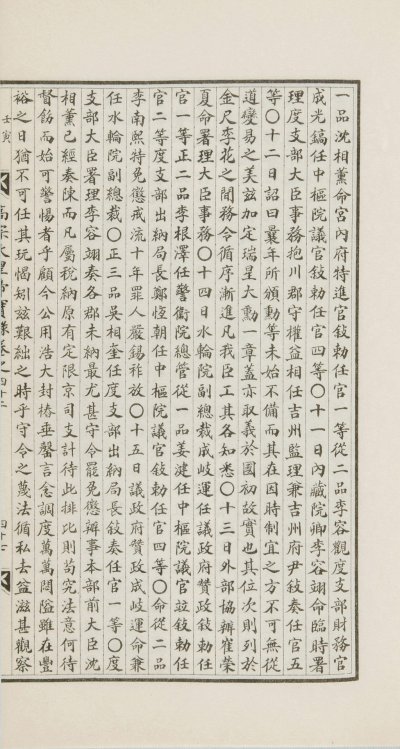 一品沈相薰命宮內府特進官敍勅任官一等從二品李容觀度支部財務官
成光鎬任中樞院議官敍勅任官四等〇十一日內藏院卿李容翊命臨時署
理度支部大臣事務抱川郡守權益相任吉州監理兼吉州府尹敍奏任官五
等〇十二日詔曰曩年所頒勳等未始不備而其在因時制宜之方不可無從
道變易之美玆加定瑞星大勳一章蓋亦取義於國初故實也其位次則列於
金尺李花之間務令循序漸進凡我臣工其各知悉〇十三日外部協辦崔榮
夏命署理大臣事務〇十四日水輪院副總裁成岐運任議政府贊政敍勅任
官一等正二品李根澤任警衛院總管從一品姜湕任中樞院議官竝敍勅任
官二等度支部出納局長鄭恆朝任中樞院議官敍勅任官四等〇命從二品
李南熙特免懲戒流十年罪人嚴錫祚放〇十五日議政府贊政成岐運命兼
任水輪院副總裁〇正三品吳相奎任度支部出納局長敍奏任官一等〇度
支部大臣署理李容翊奏各郡未納最尤甚守令罷免懲辦事本部前大臣沈
相薰已經奏陳而凡屬稅納原有定限京司支計待此排比則苟究法意何待
督飭而始可警惕者乎顧今公用浩大封樁垂罄言念調度萬萬悶隘雖在豐
裕之日猶不可任其玩愒矧玆艱絀之時乎守令之蔑法循私去益滋甚觀察
壬寅
高宗太皇帝實錄卷之四十二
四十七